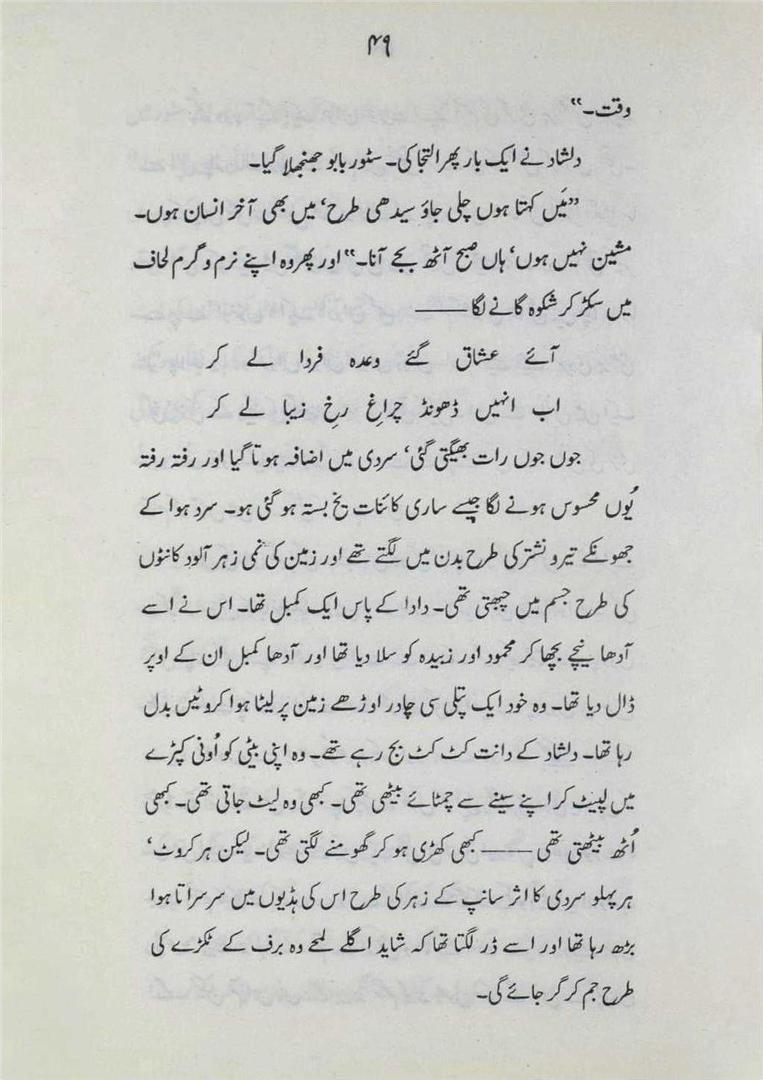 ۴۹
وقت۔"
دلشاد نے ایک بار پھر التجا کی۔ سٹور بابو جھنجھلا گیا۔
"مَیں کہتا ہوں چلی جاؤ سیدھی طرح، میں بھی آخر انسان ہوں۔
مشین نہیں ہوں، ہاں صبح آٹھ بجے آنا۔" اور پھر وہ اپنے نرم و گرم لحاف
میں سکڑ کر شکوہ گانے لگا ———
آئے عشاق گئے وعدہ فردا لے کر
اب انہیں ڈھونڈ چراغِ رخِ زیبا لے کر
جوں جوں رات بھیگتی گئی، سردی میں اضافہ ہوتا گیا اور رفتہ رفتہ
یُوں محسوس ہونے لگا جیسے ساری کائنات یخ بستہ ہو گئی ہو۔ سرد ہوا کے
جھونکے تیر و نشتر کی طرح بدن میں لگتے تھے اور زمین کی نمی زہر آلود کانٹوں
کی طرح جسم میں چبھتی تھی۔ دادا کے پاس ایک کمبل تھا۔ اس نے اسے
آدھا نیچے بچھا کر محمود اور زبیدہ کو سلا دیا تھا اور آدھا کمبل ان کے اوپر
ڈال دیا تھا۔ وہ خود ایک پتلی سی چادر اوڑھے زمین پر لیٹا ہوا کروٹیں بدل
رہا تھا۔ دلشاد کے دانت کٹ کٹ بج رہے تھے۔ وہ اپنی بیٹی کو اُونی کپڑے
میں لپیٹ کر اپنے سینے سے چمٹائے بیٹھی تھی۔ کبھی وہ لیٹ جاتی تھی۔ کبھی
اُٹھ بیٹھتی تھی ——— کبھی کھڑی ہو کر گھومنے لگتی تھی۔ لیکن ہر کروٹ،
ہر پہلو سردی کا اثر سانپ کے زہر کی طرح اس کی ہڈیوں میں سرسراتا ہوا
بڑھ رہا تھا اور اسے ڈر لگتا تھا کہ شاید اگلے لمحے وہ برف کے ٹکڑے کی
طرح جم کر گر جائے گی۔